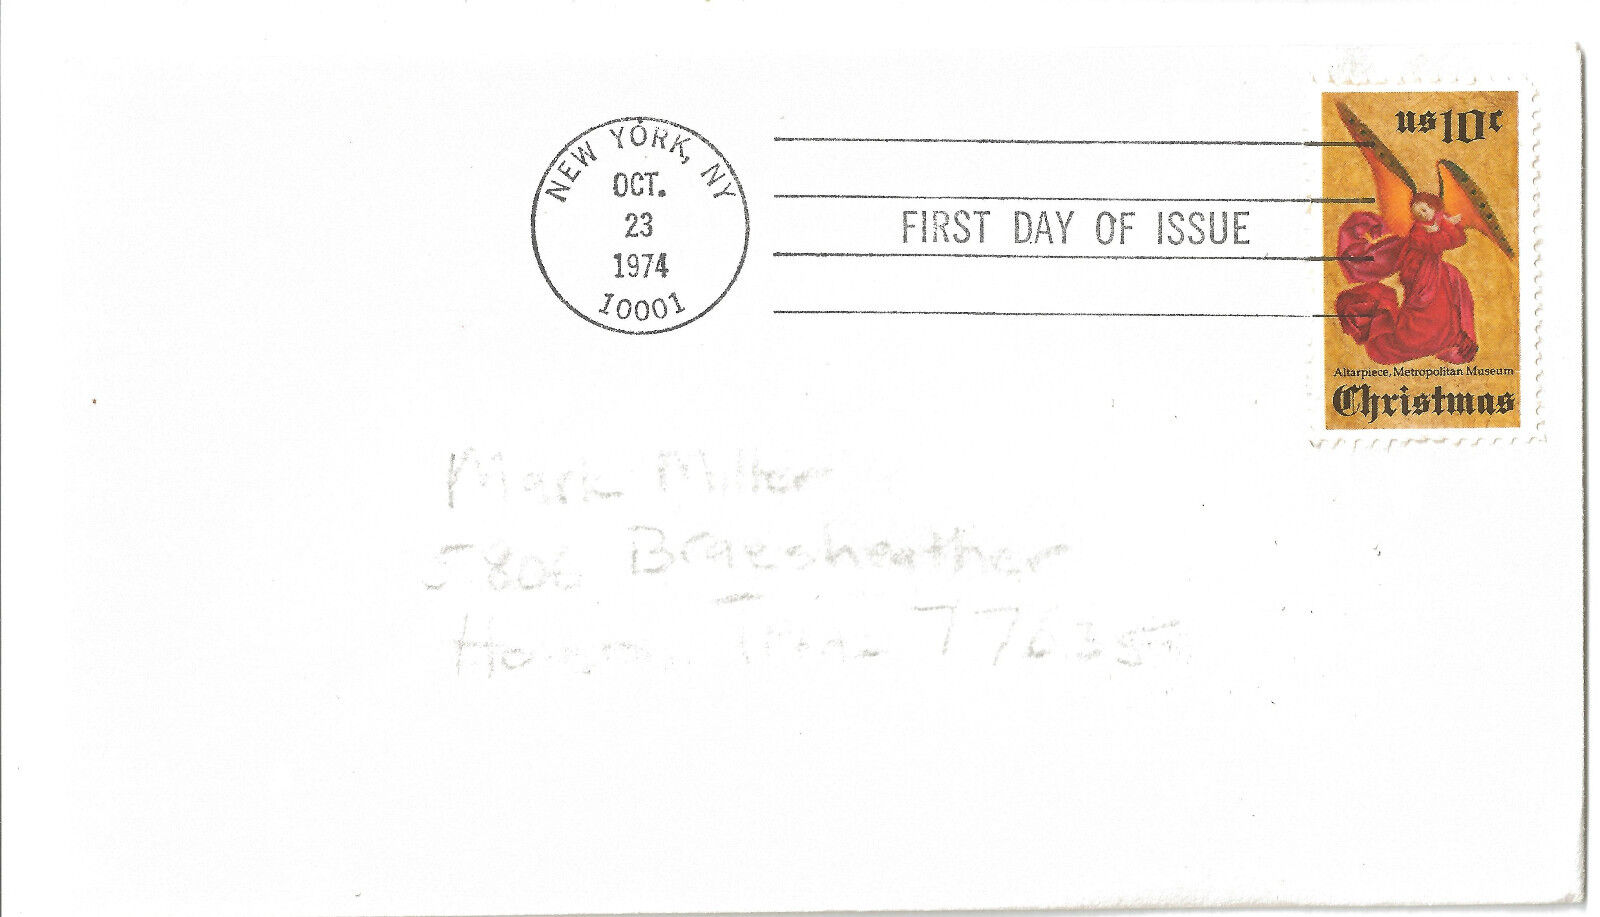 NEW YORK, NY
OCT.
23
1974
10001
FIRST DAY OF ISSUE
us 10c
Altarpiece, Metropolitan Museum
Christmas
Mark Miller
5806 Braesheather
77035